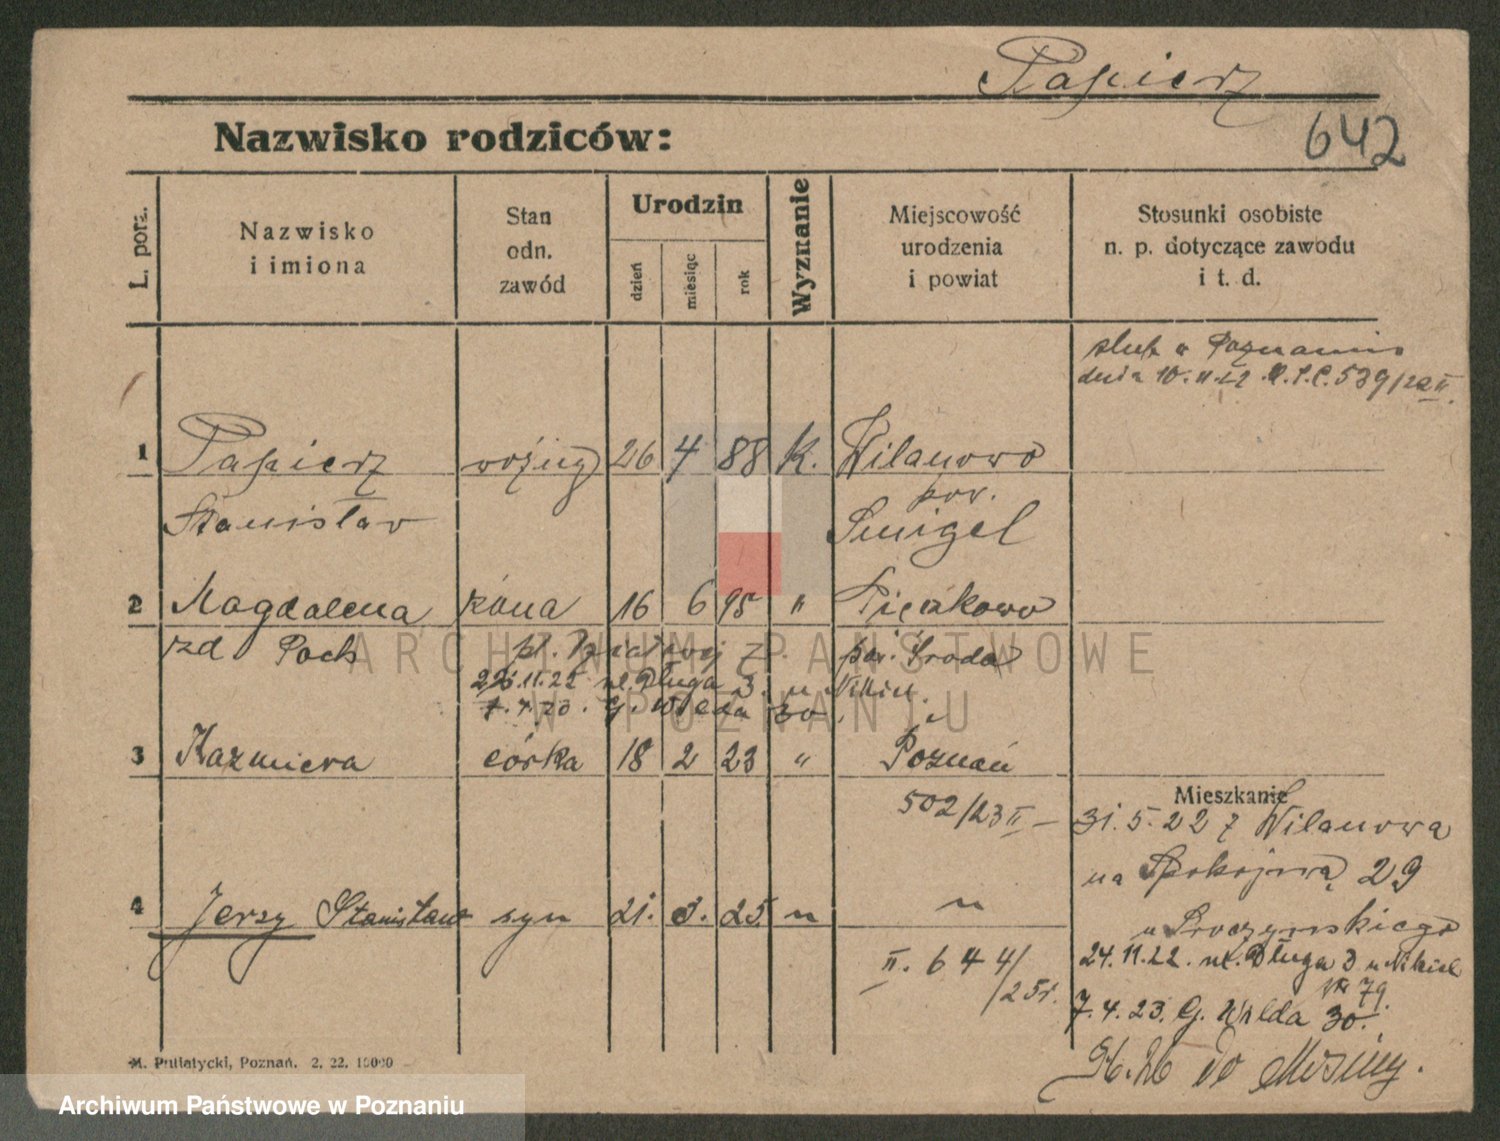 Papierz
Nazwisko rodziców:
642
L. porz.
Nazwisko
i imiona
Stan
odn.
zawód
Urodzin
dzień
miesiąc
rok
Wyznanie
Miejscowość
urodzenia
i powiat
Stosunki osobiste
n. p. dotyczące zawodu
i t. d.
ślub w Poznaniu
dnia 10.11.22 539/22 II
1 Papierz woźny 26 4 88 k. Wilanowo
Stanisław pow.
Śmigel
2 Magdalena żona 16 6 95 " Pięczkowo
zd Poch pow. Środa
22.11.22 ul. Długa 3. u Nikiel.
7.4.23. G. Wilda 30.
3 Kazmiera córka 18 2 23 " Poznań
502/23 II
4 Jerzy Stanisław syn 21. 3. 25. " "
II. 644/
25r.
Mieszkanie
31.5.22 z Wilanowa
na Spokojną 29
u
24.11.22. ul. Długa 3 u Nikiel
79.
7.4.23. G. Wilda 30.
do Mosiny.
M. Putiatycki, Poznań. 2. 22. 10000
ARCHIWUM PAŃSTWOWE
W POZNANIU
Archiwum Państwowe w Poznaniu